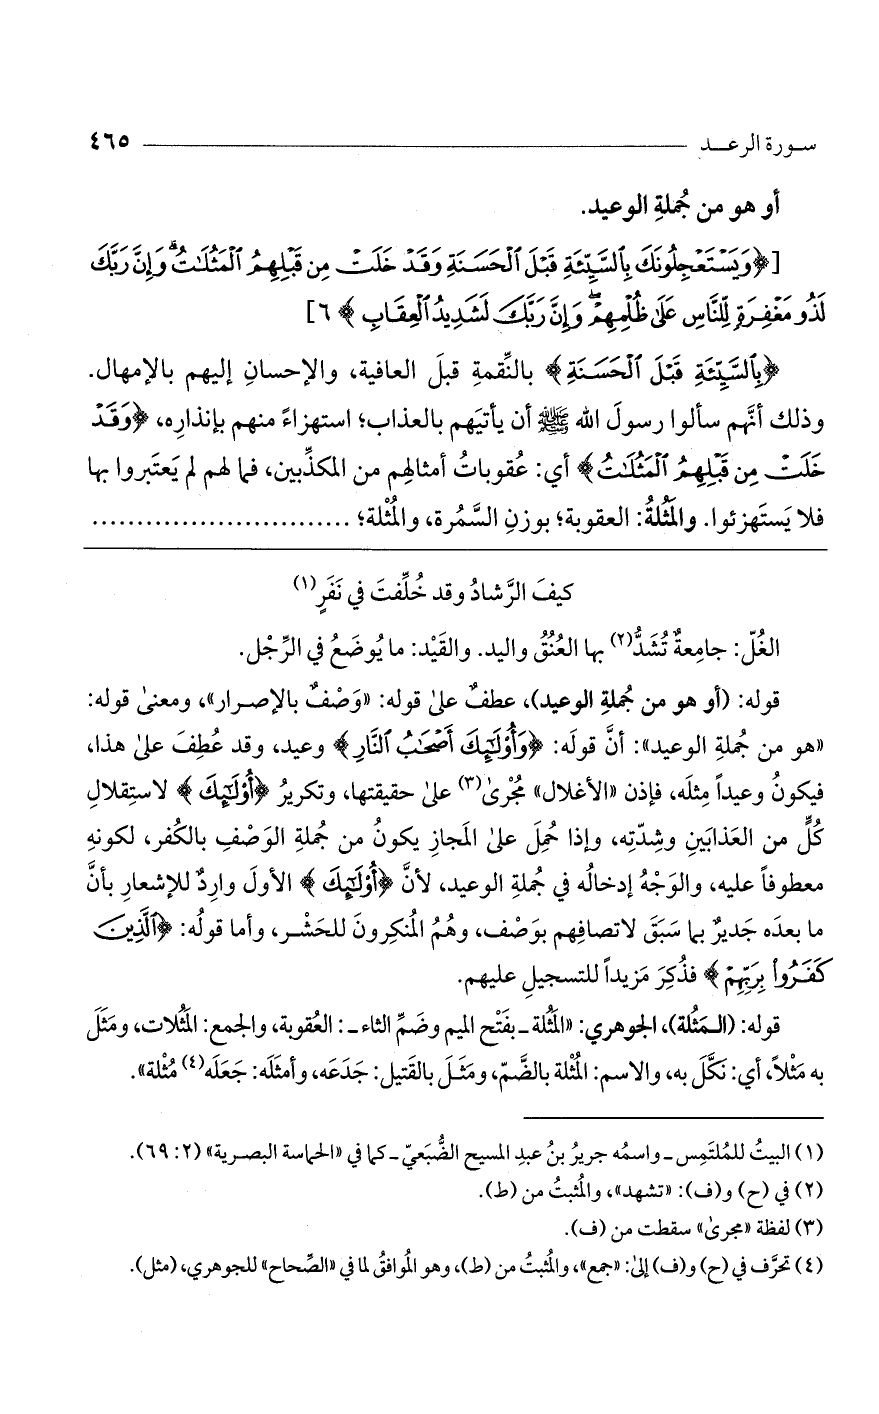 سورة الرعد ٤٦٥
أو هو من جُملةِ الوعيد.
[﴿وَيَسْتَعْجِلُونَكَ بِٱلسَّيِّئَةِ قَبْلَ ٱلْحَسَنَةِ وَقَدْ خَلَتْ مِن قَبْلِهِمُ ٱلْمَثُلَٰتُ ۗ وَإِنَّ رَبَّكَ
لَذُو مَغْفِرَةٍ لِّلنَّاسِ عَلَىٰ ظُلْمِهِمْ ۖ وَإِنَّ رَبَّكَ لَشَدِيدُ ٱلْعِقَابِ﴾ ٦]
﴿بِٱلسَّيِّئَةِ قَبْلَ ٱلْحَسَنَةِ﴾ بالنِّقمةِ قبلَ العافية، والإحسانِ إليهم بالإمهال.
وذلك أنَّهم سألوا رسولَ الله ﷺ أن يأتيَهم بالعذاب؛ استهزاءً منهم بإنذارِه، ﴿وَقَدْ
خَلَتْ مِن قَبْلِهِمُ ٱلْمَثُلَٰتُ﴾ أي: عُقوباتُ أمثالِهم من المكذِّبين، فما لهم لم يَعتَبروا بها
فلا يَستَهزئوا. والمَثُلةُ: العقوبة؛ بوزنِ السَّمُرة، والمُثْلة؛ ............................
كيفَ الرَّشادُ وقد خُلِّفتَ في نَفَرٍ(١)
الغُلّ: جامِعةٌ تُشَدُّ(٢) بها العُنُقُ واليد. والقَيْد: ما يُوضَعُ في الرِّجْل.
قوله: (أو هو من جُملةِ الوعيد)، عطفٌ علىٰ قوله: «وَصْفٌ بالإصرار»، ومعنىٰ قوله:
«هو من جُملةِ الوعيد»: أنَّ قولَه: ﴿وَأُوْلَٰٓئِكَ أَصْحَٰبُ ٱلنَّارِ﴾ وعيد، وقد عُطِفَ علىٰ هذا،
فيكونُ وعيداً مِثلَه، فإذن «الأغلال» مُجْرىٰ(٣) علىٰ حقيقتها، وتكريرُ ﴿أُوْلَٰٓئِكَ﴾ لاستِقلالِ
كُلٍّ من العَذابَينِ وشِدّتِه، وإذا حُمِلَ علىٰ المَجازِ يكونُ من جُملةِ الوَصْفِ بالكُفر، لكونهِ
معطوفاً عليه، والوَجْهُ إدخالُه في جُملةِ الوعيد، لأنَّ ﴿أُوْلَٰٓئِكَ﴾ الأولَ واردٌ للإشعارِ بأنَّ
ما بعدَه جَديرٌ بما سَبَقَ لاتصافِهم بوَصْف، وهُمُ المُنكِرونَ للحَشْر، وأما قولُه: ﴿ٱلَّذِينَ
كَفَرُوا۟ بِرَبِّهِمْ﴾ فذُكِرَ مَزيداً للتسجيلِ عليهم.
قوله: (المَثُلة)، الجوهري: «المَثُلة ـ بفَتْح الميم وضَمِّ الثاء ـ: العُقوبة، والجمع: المَثُلات، ومَثَلَ
به مَثْلاً، أي: نَكَّلَ به، والاسم: المُثْلة بالضَّمّ، ومَثَلَ بالقَتيل: جَدَعَه، وأمثَلَه: جَعَلَه(٤) مُثْلة».
(١) البيتُ للمُلتَمِس ـ واسمُه جريرُ بنُ عبدِ المسيح الضُّبَعيّ ـ كما في «الحماسة البصرية» (٢: ٦٩).
(٢) في (ح) و(ف): «تشهد»، والمُثبتُ من (ط).
(٣) لفظة «مجرىٰ» سقطت من (ف).
(٤) تحرَّف في (ح) و(ف) إلىٰ: «جمع»، والمُثبتُ من (ط)، وهو المُوافقُ لما في «الصِّحاح» للجوهري، (مثل).